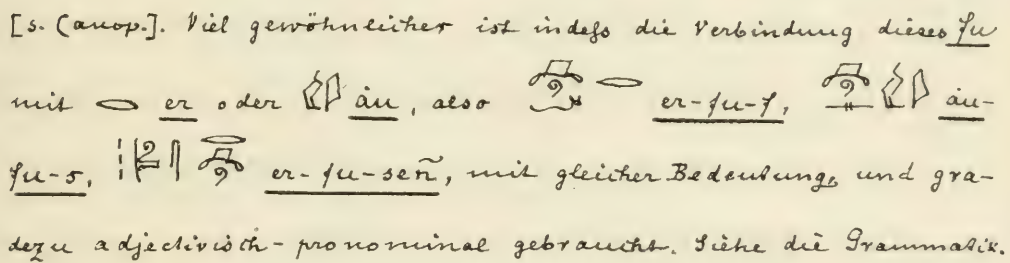 [s. Canop.]. Viel gewöhnlicher ist indeß die Verbindung dieses fu
mit 𓂋 er oder áu, also er-fu-f, áu-
fu-s, er-fu-señ, mit gleicher Bedeutung, und gra-
dezu adjectivisch-pronominal gebraucht. Siehe die Grammatik.